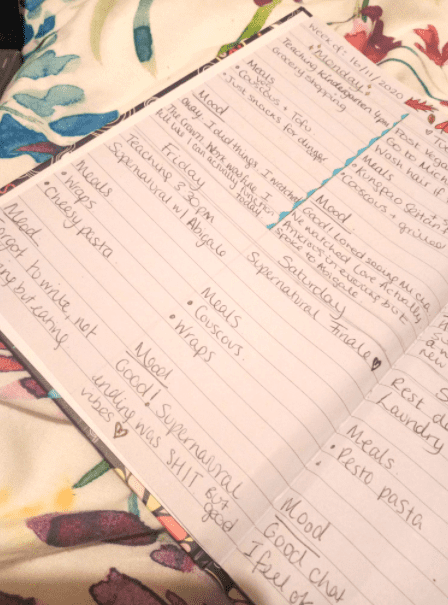 Week of: 16/11/2020
Monday
Teaching kindergarten 4pm
Grocery shopping
Meals
• Couscous + Tofu
• Just snacks for dinner
Mood
Okay, I did things, I watched
The Crown. Work was fine. I
felt like I can actually function
today!
Go to
Wash hair
Meals
• Kungpao
• Couscous +
Mood
Good! Loved seeing
We watched Love Actually
Anxious in evening but
spoke to Abigale
Friday
Teaching 3:30pm
Supernatural w/ Abigale
Meals
• Wraps
• Cheesy pasta
Mood
to write, not
but eating
Saturday
Supernatural Finale ♥
Meals
• Couscous.
• Wraps
Mood
Good! Supernatural
ending was SHIT but good
vibes ♥
Rest
Laundry
Meals
• Pesto pasta
•
Mood
Good chat
I feel